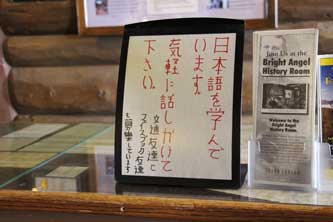 日本語を学んで
います。
気軽に話しかけて
下さい。
文通友達と
フェイスブック友達
も募集しています
Join Us at the
Bright Angel
History Room
Welcome to the
Bright Angel
History Room